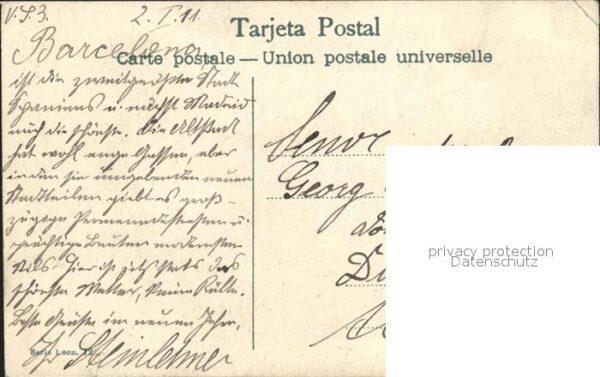 V.S.3. 2.I.11
Tarjeta Postal
Carte postale — Union postale universelle
Barcelona
ist die zweitgrößte Stadt
Spaniens u. nächst Madrid
auch die schönste. Die Altstadt
hat wohl enge Gassen, aber
in den sie umgebenden neuen
Stadtteilen giebt es groß-
zügige Promenadestraßen u.
prächtige Bauten modernsten
Stils. Hier ist jetzt stets das
schönste Wetter, keine Kälte.
Beste Grüße im neuen Jahre,
Ihr Steinlehner
Serie Leon.
Senor
Georg
privacy protection
Datenschutz